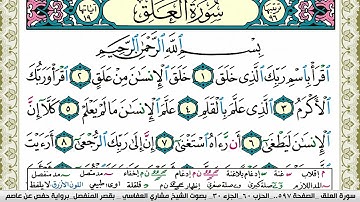 سُورَةُ العَلَقِ
بِسْمِ اللَّهِ الرَّحْمَٰنِ الرَّحِيمِ
اقْرَأْ بِاسْمِ رَبِّكَ الَّذِي خَلَقَ ١ خَلَقَ الْإِنسَانَ مِنْ عَلَقٍ ٢ اقْرَأْ وَرَبُّكَ
الْأَكْرَمُ ٣ الَّذِي عَلَّمَ بِالْقَلَمِ ٤ عَلَّمَ الْإِنسَانَ مَا لَمْ يَعْلَمْ ٥ كَلَّا إِنَّ
الْإِنسَانَ لَيَطْغَىٰ ٦ أَن رَّءَاهُ اسْتَغْنَىٰ ٧ إِنَّ إِلَىٰ رَبِّكَ الرُّجْعَىٰ ٨ أَرَءَيْتَ
سورة العلق - الصفحة ٥٩٧ - الحزب ٦٠ - الجزء ٣٠ - بصوت الشيخ مشاري العفاسي - بقصر المنفصل برواية حفص عن عاصم